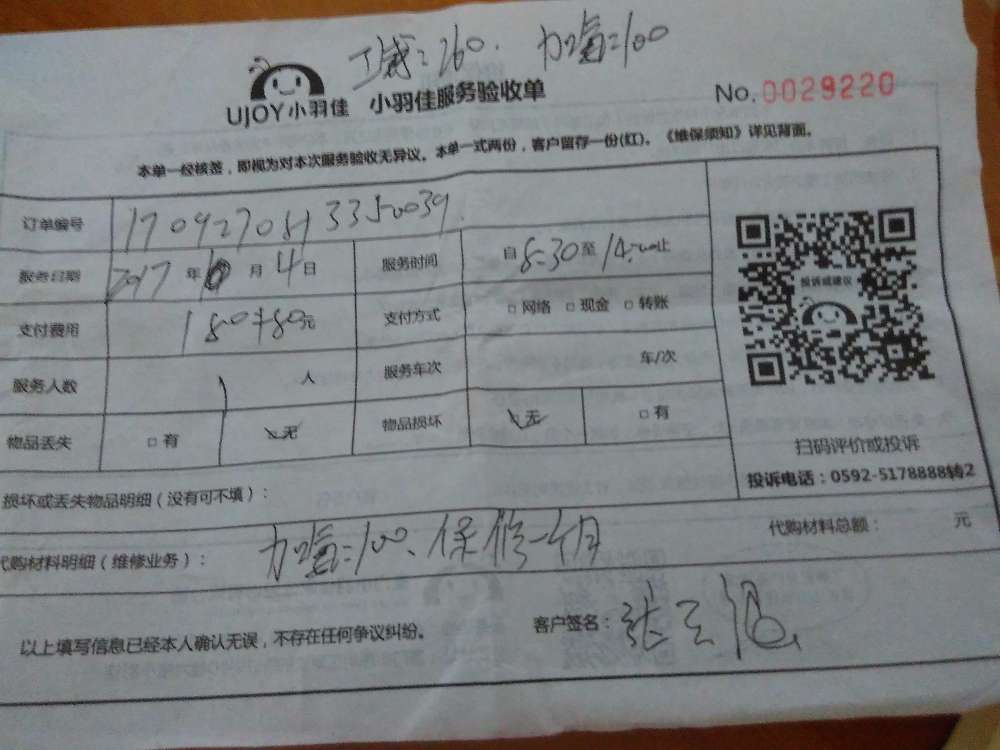 =260. 加氟=100
UJOY小羽佳 小羽佳服务验收单 No. 0029220
本单一经核签，即视为对本次服务验收无异议。本单一式两份，客户留存一份(红)。《维保须知》详见背面。
订单编号
服务日期 2017年10月4日 服务时间 自8:30至14:00止
支付费用 180+80元 支付方式 □网络 □现金 □转账
服务人数 1人 服务车次 车/次
物品丢失 □有 □无 物品损坏 □无 □有
投诉或建议
扫码评价或投诉
投诉电话：0592-5178888转2
损坏或丢失物品明细（没有可不填）：
代购材料明细（维修业务）： 加氟=100、保修一个月 代购材料总额： 元
以上填写信息已经本人确认无误，不存在任何争议纠纷。 客户签名：